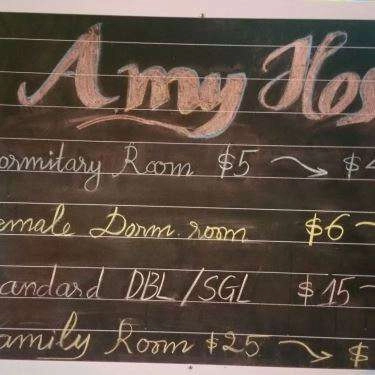 Amy Hos
ormitary Room $5 → $4
emale Dorm room $6 →
andard DBL/SGL $15 →
amily Room $25 → $